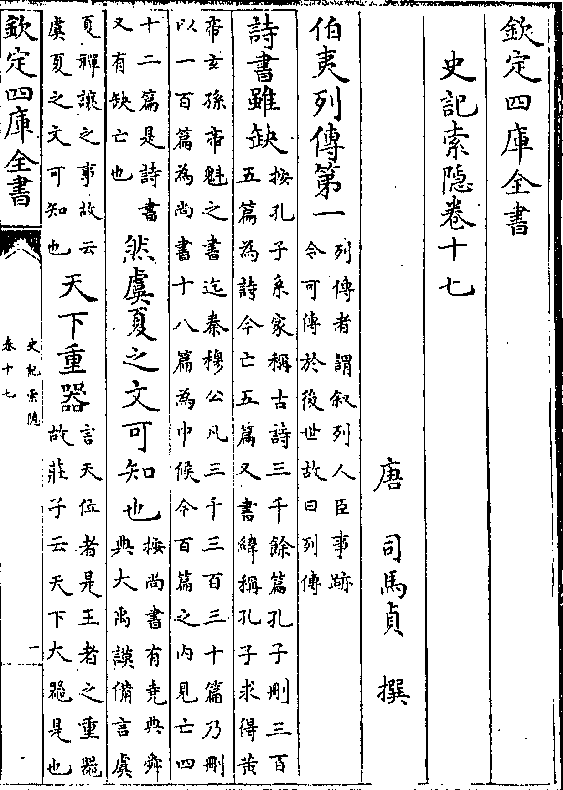 欽定四庫全書
史記索隱卷十七
唐 司馬貞 撰
伯夷列傳第一
列傳者謂叙列人臣事跡
令可傳於後世故曰列傳
詩書雖缺
按孔子系家稱古詩三千餘篇孔子刪三百
五篇為詩今亡五篇又書緯稱孔子求得黃
帝玄孫帝魁之書迄秦穆公凡三千三百三十篇乃刪
以一百篇為尚書十八篇為中候今百篇之內見亡四
十二篇是詩書
又有缺亡也
然虞夏之文可知也
按尚書有堯典舜
典大禹謨備言虞
夏禪讓之事故云
虞夏之文可知也
天下重器
言天位者是王者之重噐
故莊子云天下大噐是也
欽定四庫全書
史記索隱
卷十七
一